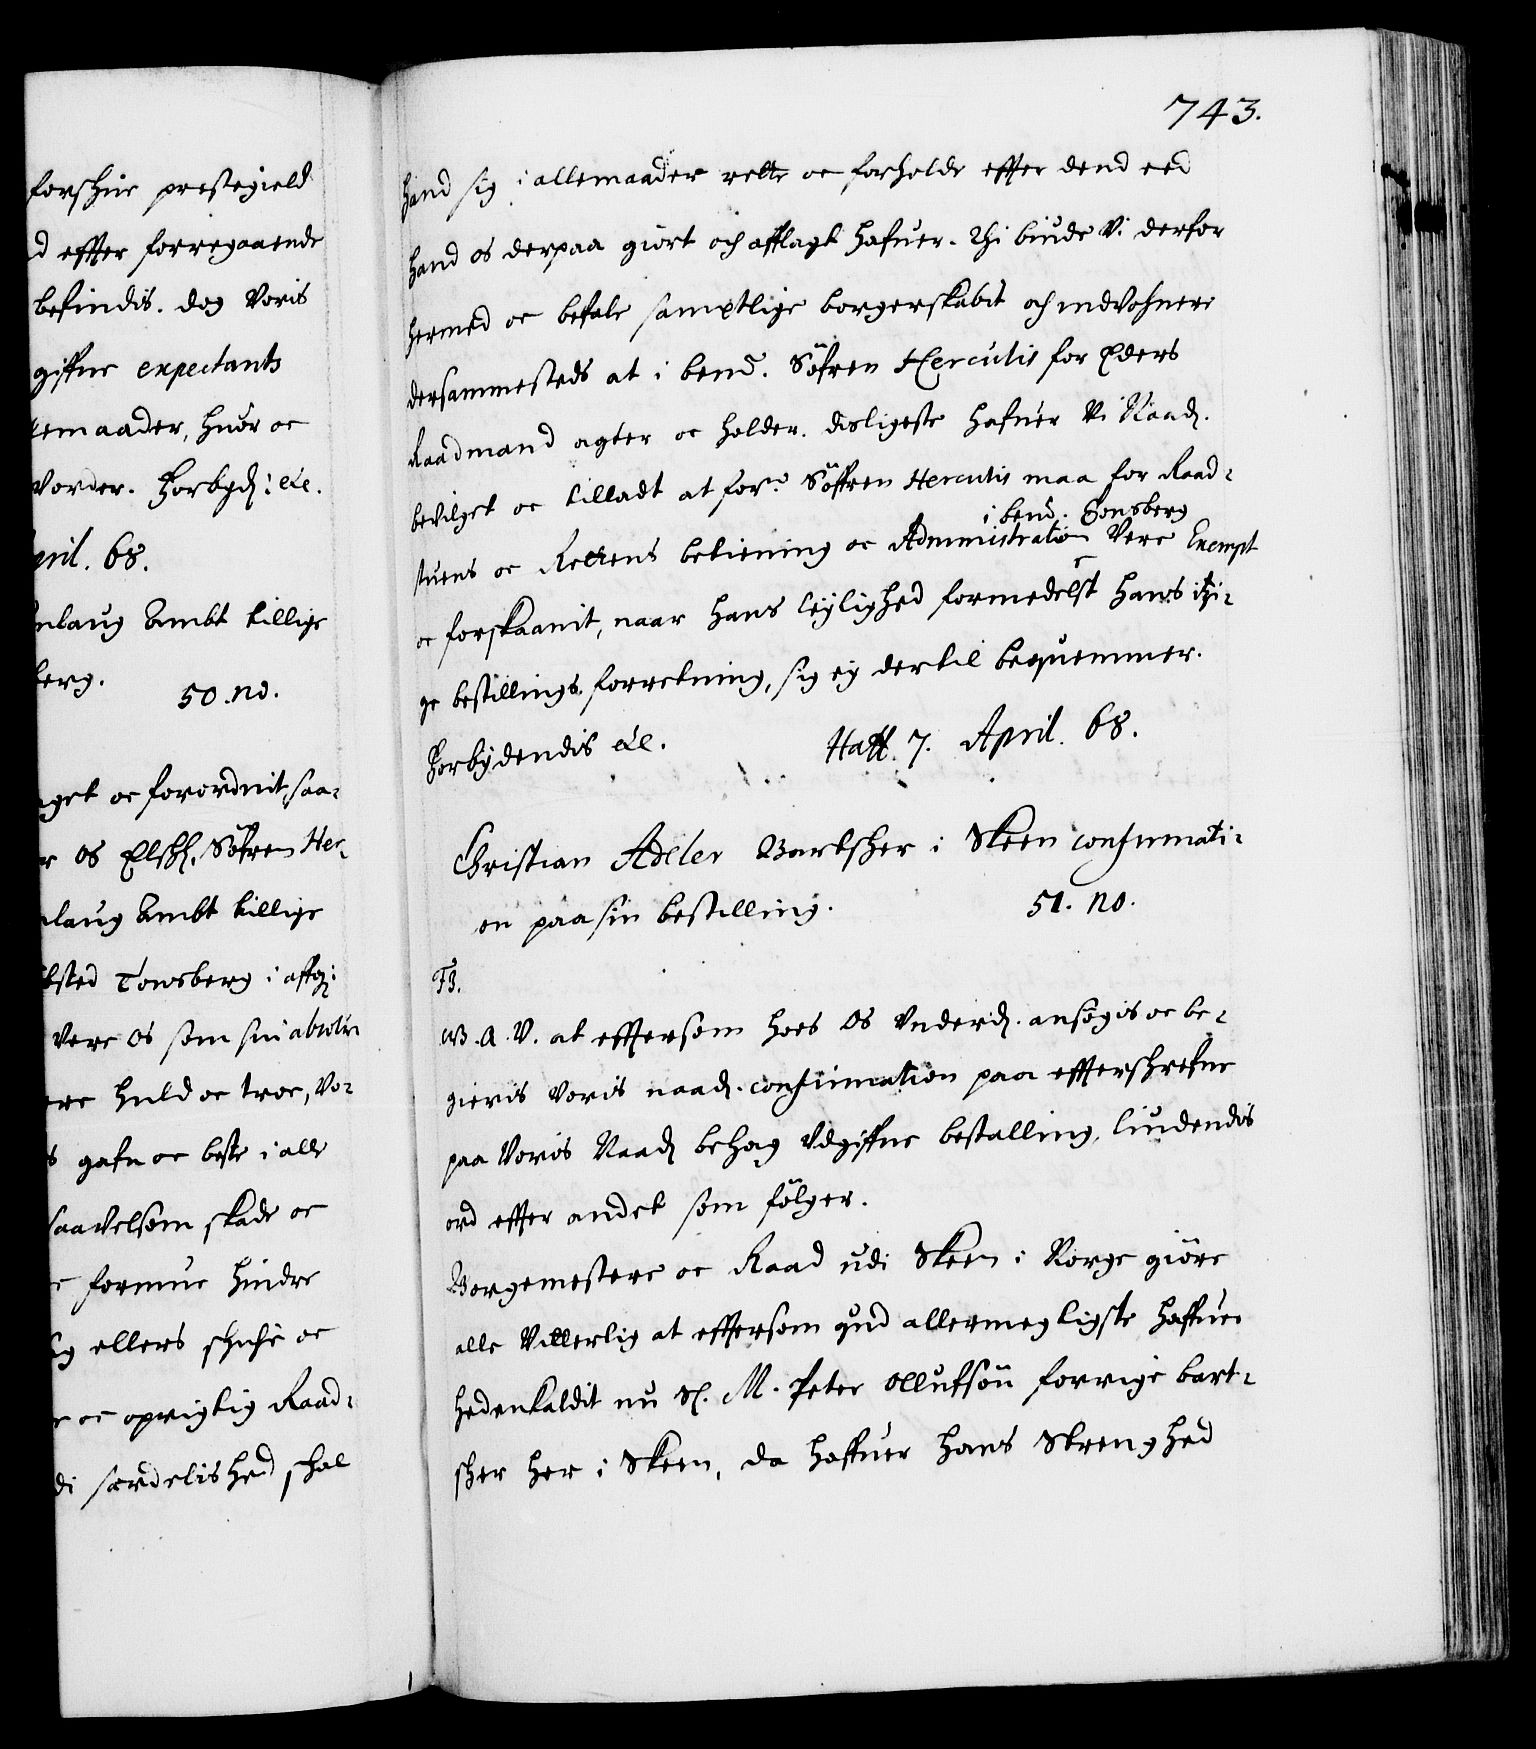 forschine prestegield
d effter forregaaende
befindis. dog Voris
giffne expectants
lemaader, huor oc
Vorder. Forbyd: etc.
pril. 68.
nlaug Ambt tillige
berg.
50. no.
aget oc forordnit, saa-
r os Elschl. Søfren Her-
nlaug Ambt tillige
bsted Tonsberg i affg:
Vere os som sin absolu
ere huld oc troe, Vo-
s gafn oc beste i alle
saavelsom skade oc
e formue hindre
ig ellers schiche oc
r oc oprigtig Raad-
di særdelished schal
743.
hand sig i allemaader rette oc forholde effter dend eed
hand os derpaa giort och afflagt hafuer. Thi biude Vi derfor
hermed oc befale samptlige borgerskabit och indvohnere
dersammesteds at i bemt. Søfren Herculis for Eders
Raadmand agter oc holder. disligeste hafuer Vi Naadl.
bevilget oc tilladt at fornt. Søffren Herculis maa for Raad-
i bemt. Tonsberg
stuens oc Rettens betiening oc Administration Vere Exempt
oc forskaanit, naar hans leylighed formedelst hans itzi-
ge bestillings forretning, sig ey dertil beqvemmer.
Forbydendis etc. Haff. 7. April. 68.
Christian Adeler Bartscher i Skeen confirmati-
on paa sin bestilling. 51. no.
F3.
W. A. V. at effttersom hoes Os Underd. ansøgis oc be-
gieris Voris naadl. confirmation paa effterschrefne
paa Voris Naadl behag Udgiffne bestalling, liudendis
ord effter andet som følger.
Borgemestere oc Raad udi Skeen i Norge giøre
alle Vitterlig at efftersom gud allermegtigste haffuer
hedenkaldit nu Sl. M. Peter Ollufsøn forrige bart-
scher her i Skeen, da haffuer hans Strenghed